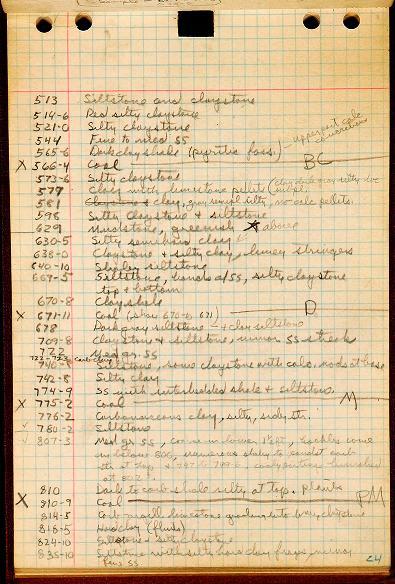 513 Siltstone and claystone
514-6 Red silty claystone
521-0 Silty claystone
544 Fine to med SS
565-6 Dark clay shale (pyritic foss.) - upper part calc concretions
X 566-4 Coal BC
573-6 Silty claystone
577 Clay with limestone pellets
581 clay, gray, silty, no calc pellets.
598 Silty claystone + siltstone
629 Mudstone, greenish above
630-5 Silty semihard clay
638-0 Claystone + silty clay, limey stringers
640-10 Shaley siltstone
667-5 Siltstone, bands of SS, silty claystone
top + bottom
670-8 Clay shale
X 671-11 Coal (shale 670-0, 671) D
678 Dark gray siltstone - + clay siltstone
709-8 Claystone + siltstone, minor SS streak
722 Med gr. SS
740- Siltstone, some claystone with calc. nods at base
742-8 Silty clay
774-9 SS with interbedded shale + siltstone
X 775-2 Coal M
776-2 Carbonaceous clay, silty
✓ 780-2 Siltstone
✓ 807-3 Med gr SS, coarse in lower
below 800, numerous shaley
at top + 797 to 799-0
at 802
810 Dark to carb shale silty at top, plants
X 810-9 Coal PM
814-5 limestone grading into claystone
818-5 Hard clay (fluds)
824-10 Siltstone + silty claystone
835-10 Siltstone with silty hard clay
fine SS
24